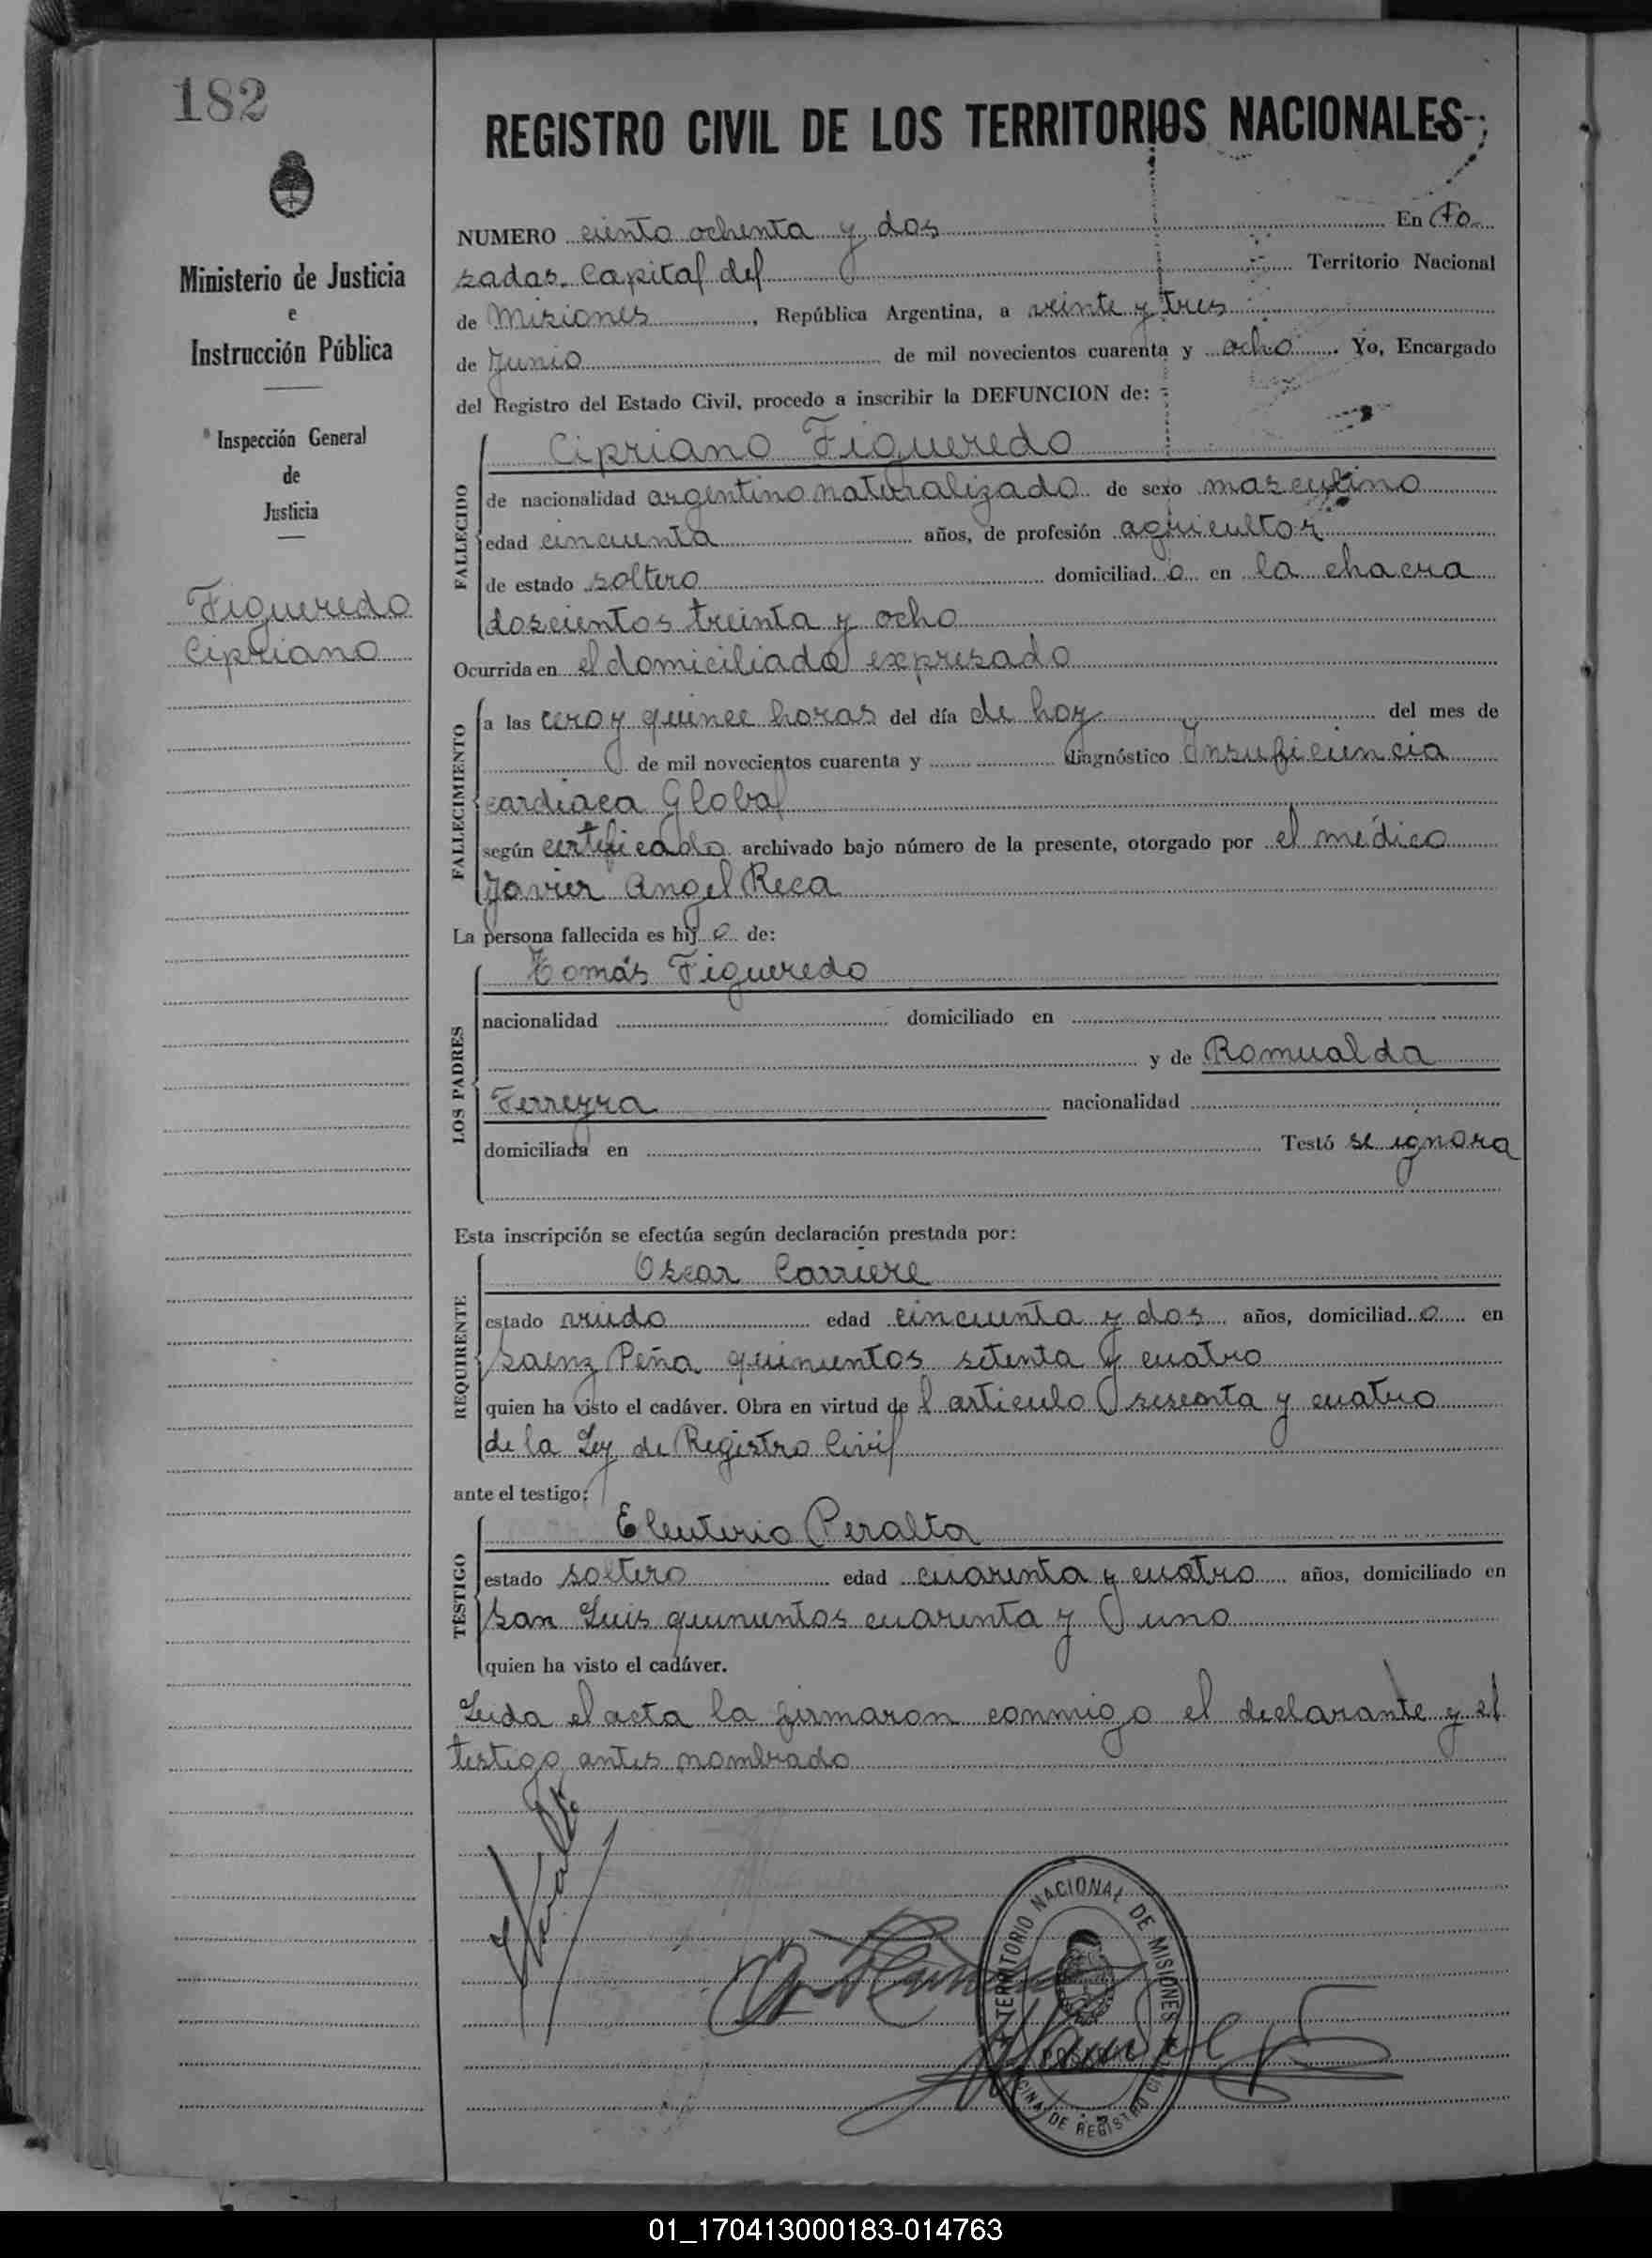 182
Ministerio de Justicia
e
Instrucción Pública
Inspección General
de
Justicia
Figueredo
Cipriano
REGISTRO CIVIL DE LOS TERRITORIOS NACIONALES
NUMERO ciento ochenta y dos En Po
sadas. Capital del Territorio Nacional
de Misiones, República Argentina, a veinte y tres
de Junio de mil novecientos cuarenta y ocho. Yo, Encargado
del Registro del Estado Civil, procedo a inscribir la DEFUNCION de:
Cipriano Figueredo
FALLECIDO
de nacionalidad argentino naturalizado de sexo masculino
edad cincuenta años, de profesión agricultor
de estado soltero domiciliad o en la chacra
doscientos treinta y ocho
Ocurrida en el domiciliado expresado
FALLECIMIENTO
a las cero y quince horas del día de hoy del mes de
de mil novecientos cuarenta y diagnóstico Insuficiencia
cardiaca Global
según certificado archivado bajo número de la presente, otorgado por el médico
Javier Angel Reca
La persona fallecida es hij o de:
LOS PADRES
Tomás Figueredo
nacionalidad domiciliado en
y de Romualda
Ferreyra nacionalidad
domiciliada en Testó se ignora
Esta inscripción se efectúa según declaración prestada por:
REQUIRENTE
Oscar Carriere
estado viudo edad cincuenta y dos años, domiciliad o en
Saenz Peña quinientos setenta y cuatro
quien ha visto el cadáver. Obra en virtud de l articulo sesenta y cuatro
de la Ley de Registro Civil
ante el testigo:
TESTIGO
Eleuterio Peralta
estado soltero edad cuarenta y cuatro años, domiciliado en
San Luis quinientos cuarenta y uno
quien ha visto el cadáver.
Leida el acta la firmaron conmigo el declarante y el
testigo antes nombrado
TERRITORIO NACIONAL DE MISIONES
OFICINA DE REGISTRO CIVIL
01_170413000183-014763